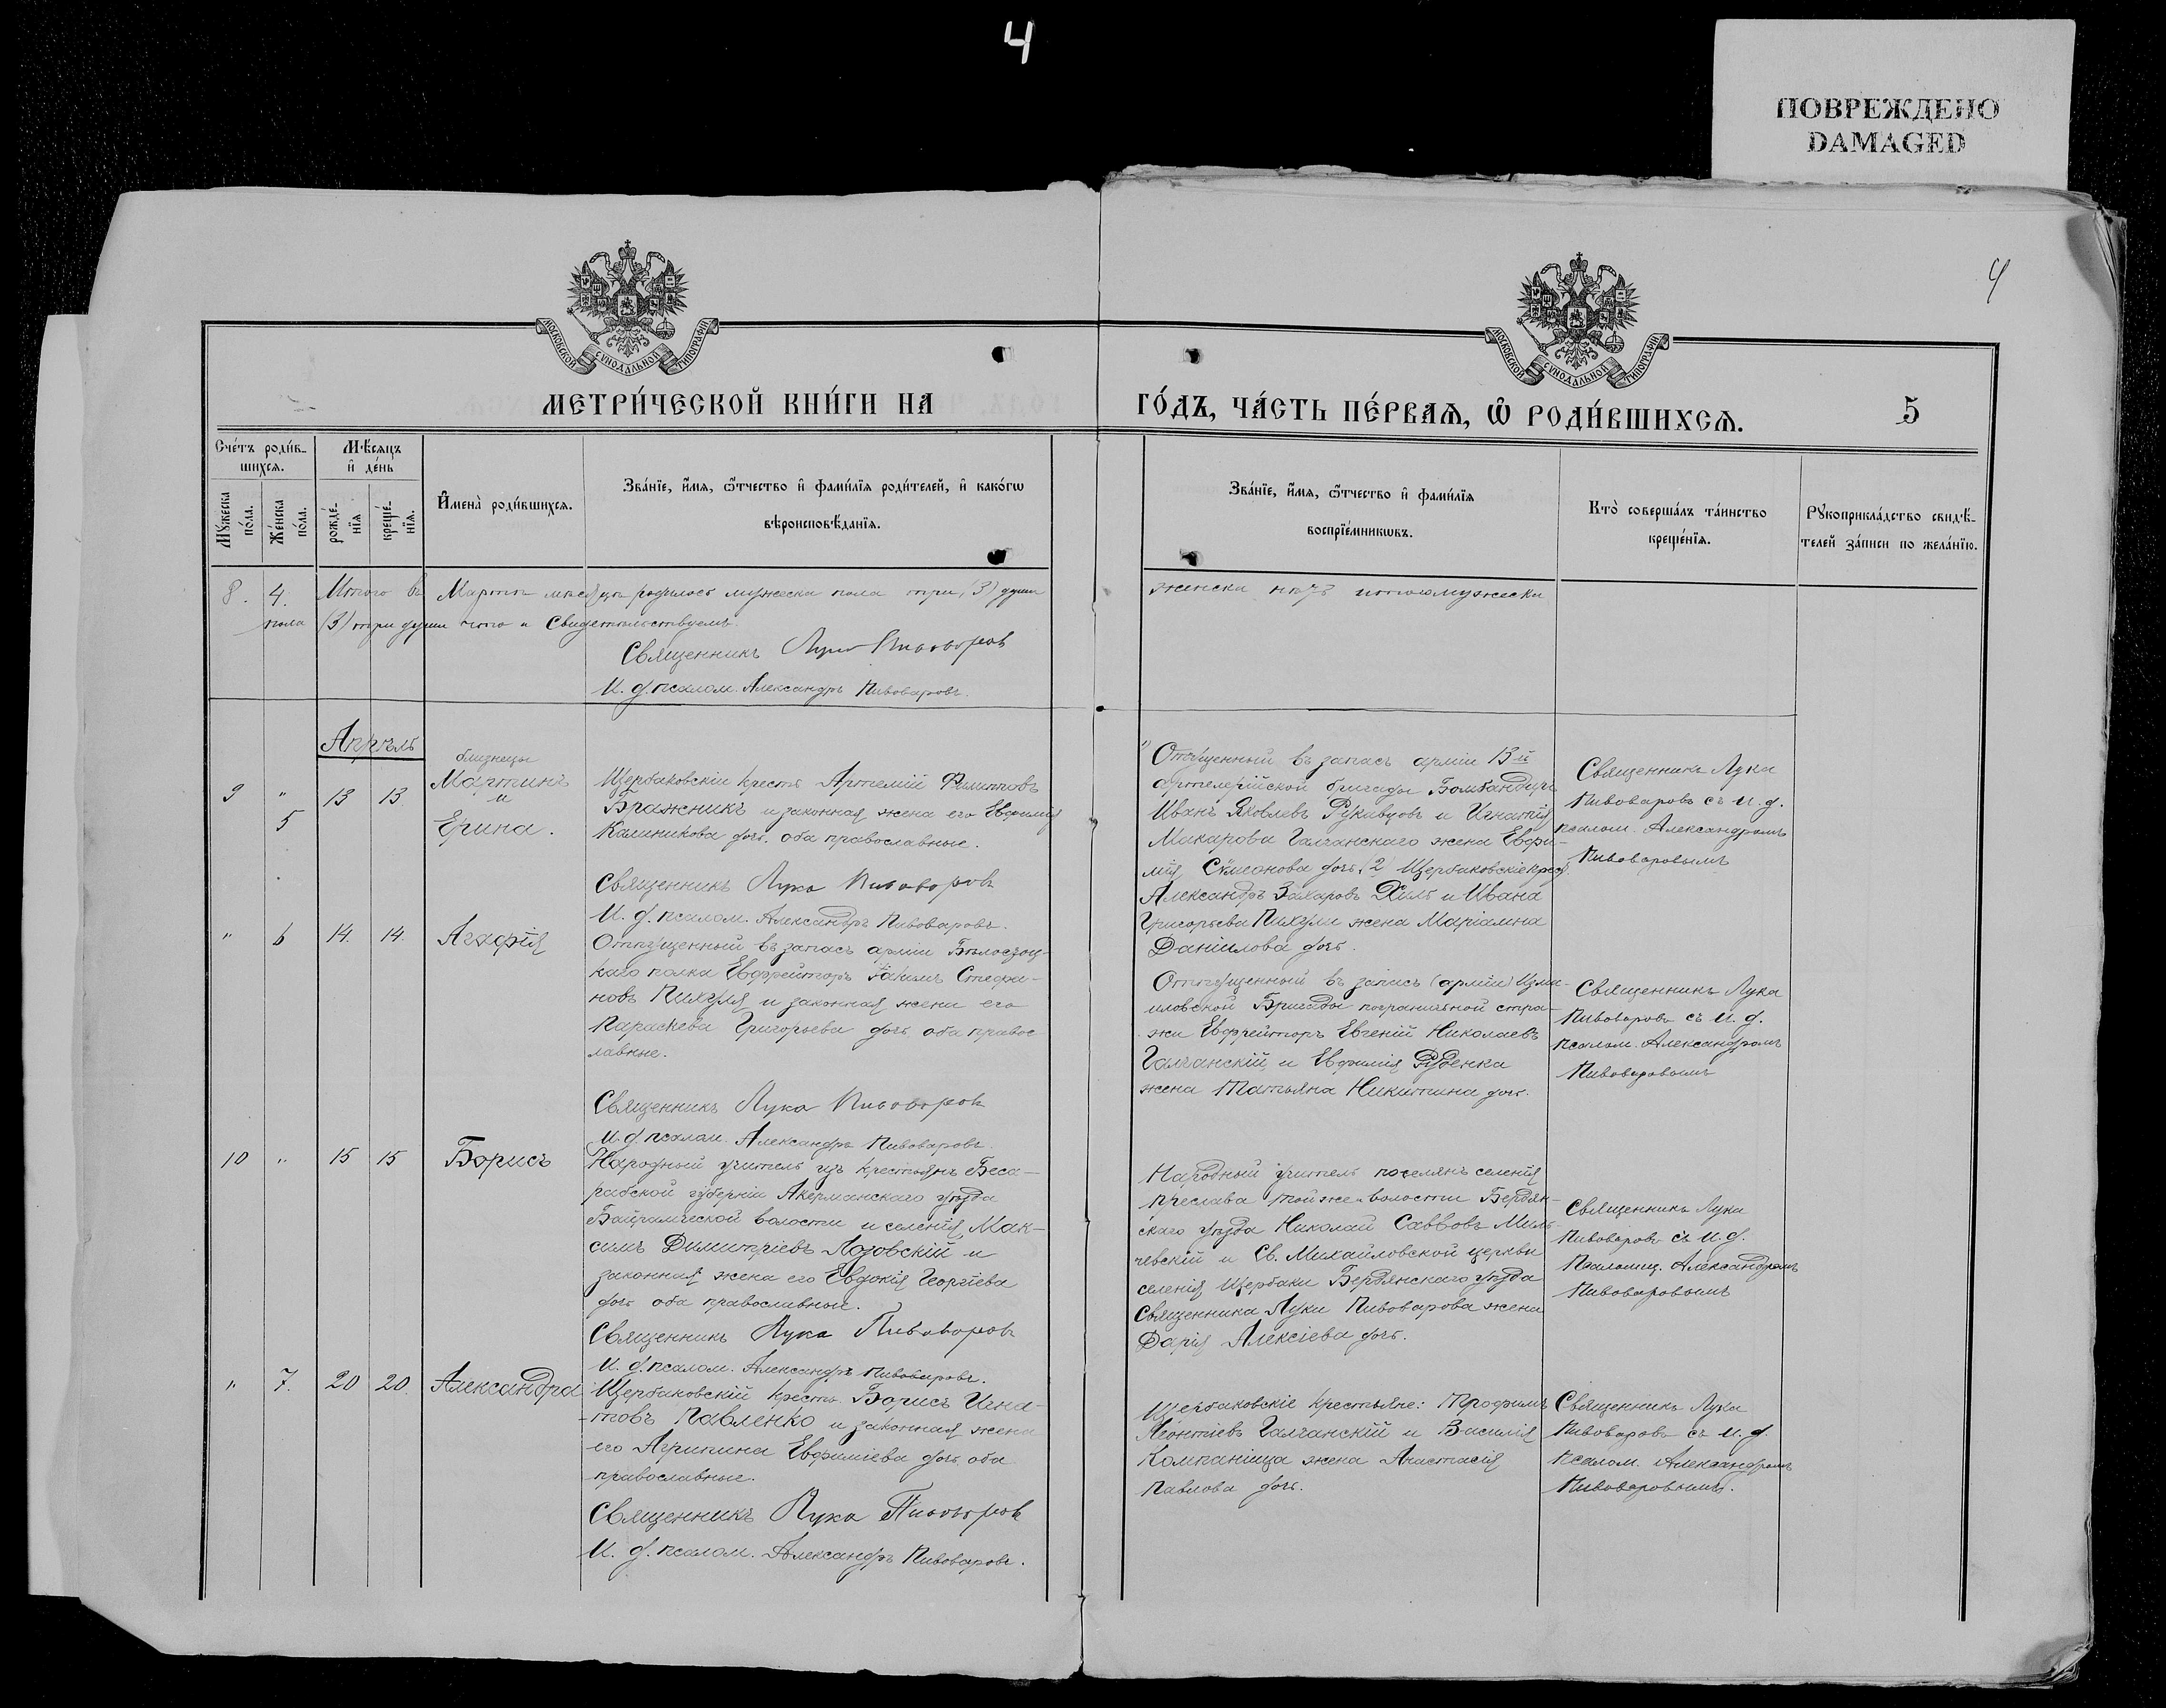 4
ПОВРЕЖДЕНО
DAMAGED
4
МОСКОВСКОЙ СѴНОДАЛЬНОЙ ТИПОГРАФІИ
МОСКОВСКОЙ СѴНОДАЛЬНОЙ ТИПОГРАФІИ
МЕТРИ́ЧЕСКОЙ КНИ́ГИ НА
ГО́ДЪ, ЧА́СТЬ ПЕ́РВАЯ, Ѡ҆ РОДИ́ВШИХСЯ.
5
Сче́тъ роди́в-
шихся.
Мѣ́сяцъ
и҆ де́нь
Мꙋ́жеска
по́ла.
Же́нска
по́ла.
рожде́-
нїя
креще́-
нїя.
И҆мена̀ роди́вшихся.
Зва́нїе, и҆́мя, ѻ҆́тчество и҆ фами́лїя роди́телей, и҆ како́гѡ
вѣроисповѣ́данїя.
Зва́нїе, и҆́мя, ѻ҆́тчество и҆ фами́лїя
воспрїе́мникѡвъ.
Кто̀ соверша́лъ та́инство
креще́нїя.
Рꙋкоприкла́дство свидѣ́-
телей за́писи по жела́нїю.
8. 4. Итого въ Мартѣ мѣсяцѣ родилось мужеска пола три (3) души
женска
пола (3) три души что и свидетельствуемъ.
Священникъ Лука Пивоваровъ
И. д. псалом. Александръ Пивоваровъ.
Апрѣль
9 " 13 13
5
близнецы
Мартинъ
и
Ерина.
Щербаковскій крест. Артемій Филипповъ
Бражникъ и законная жена его Евфимія
Калиникова доч. оба православные.
Священникъ Лука Пивоваровъ
И. д. псалом. Александръ Пивоваровъ.
Отпущенный въ запасъ арміи 13й
артелерійской бригады Бомбандиръ
Иванъ Яковлевъ Рукавцовъ и Игнатія
Макарова Галчанскаго жена Евфи-
мія Симеонова доч. (2) Щербаковскіе крест.
Александръ Захаровъ Хиль и Ивана
Григорьева Пихули жена Маріамна
Даніилова доч.
Священникъ Лука
Пивоваровъ съ и. д.
псалом. Александромъ
Пивоваровымъ
" 6 14. 14. Агафія
Отпущенный въ запасъ арміи Бѣлостоц-
каго полка Евфрейторъ Іакимъ Стефа-
новъ Пихуля и законная жена его
Параскева Григорьева доч. оба правос
лавные.
Священникъ Лука Пивоваровъ
И. д. псалом. Александръ Пивоваровъ.
Отпущенный въ запасъ (арміи) Изма-
иловской Бригады пограничной стра-
жи Евфрейторъ Евгеній Николаевъ
Галчанскій и Евфимія Руденка
жена Татьяна Никитина доч.
Священникъ Лука
Пивоваровъ съ и. д.
псалом. Александромъ
Пивоваровымъ
10 " 15 15 Борисъ
Народный учитель изъ крестьянъ Беса-
рабской губерніи Акерманскаго уѣзда
Байрамческой волости и селенія Мак-
симъ Димитріевъ Лозовскій и
законная жена его Евдокія Георгіева
доч. оба православные.
Священникъ Лука Пивоваровъ
И. д. псалом. Александръ Пивоваровъ.
Народный учитель поселянъ селенія
Преслава тойже волости Бердян-
скаго уѣзда Николай Саввовъ Миль-
чевскій и Св. Михайловской церкви
селенія Щербаки Бердянскаго уѣзда
Священника Луки Пивоварова жена
Дарія Алексіева доч.
Священникъ Лука
Пивоваровъ съ и. д.
Псаломщ. Александромъ
Пивоваровымъ
" 7. 20 20. Александра
Щербаковскій крест. Борисъ Игна-
товъ Павленко и законная жена
его Агрипина Евфиміева доч. оба
православные.
Священникъ Лука Пивоваровъ
И. д. псалом. Александръ Пивоваровъ.
Щербаковскіе крестьяне: Трофимъ
Леонтіевъ Галчанскій и Василія
Компанійца жена Анастасія
Павлова доч.
Священникъ Лука
Пивоваровъ съ и. д.
Псалом. Александромъ
Пивоваровымъ.